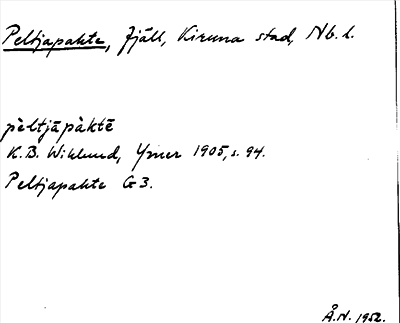 Peltjapakte, fjäll, Kiruna stad, Nb. l.
pèltjāpàktē
K.B. Wiklund, Ymer 1905, s. 94.
Peltjapakte G3.
Å.N. 1952.